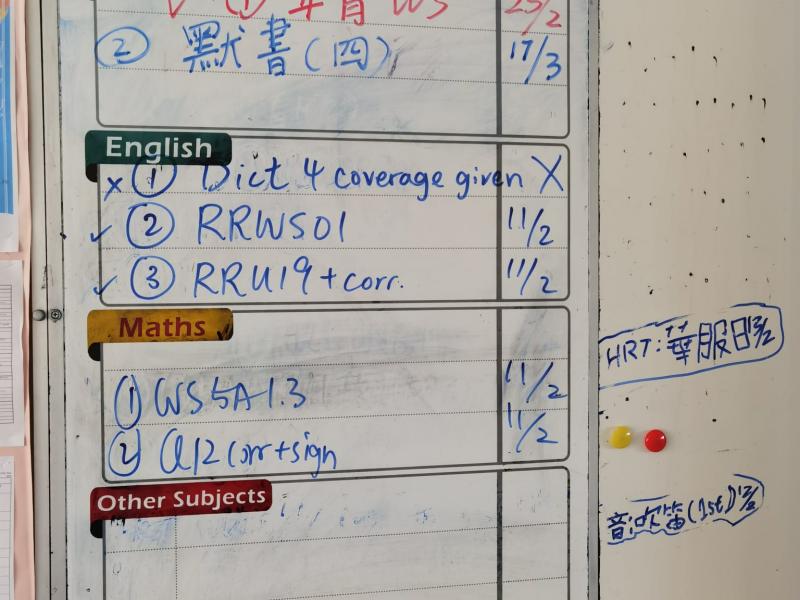 ① 年宵 WS 25/2
② 默書(四) 17/3
English
x ① Dict 4 coverage given X
✓ ② RRWS01 11/2
✓ ③ RRU19+corr. 11/2
Maths
① WS5A1.3 11/2
② Q12 corr+sign 11/2
Other Subjects
HRT: 華服日 13/2
音:吹笛(1st) 12/2